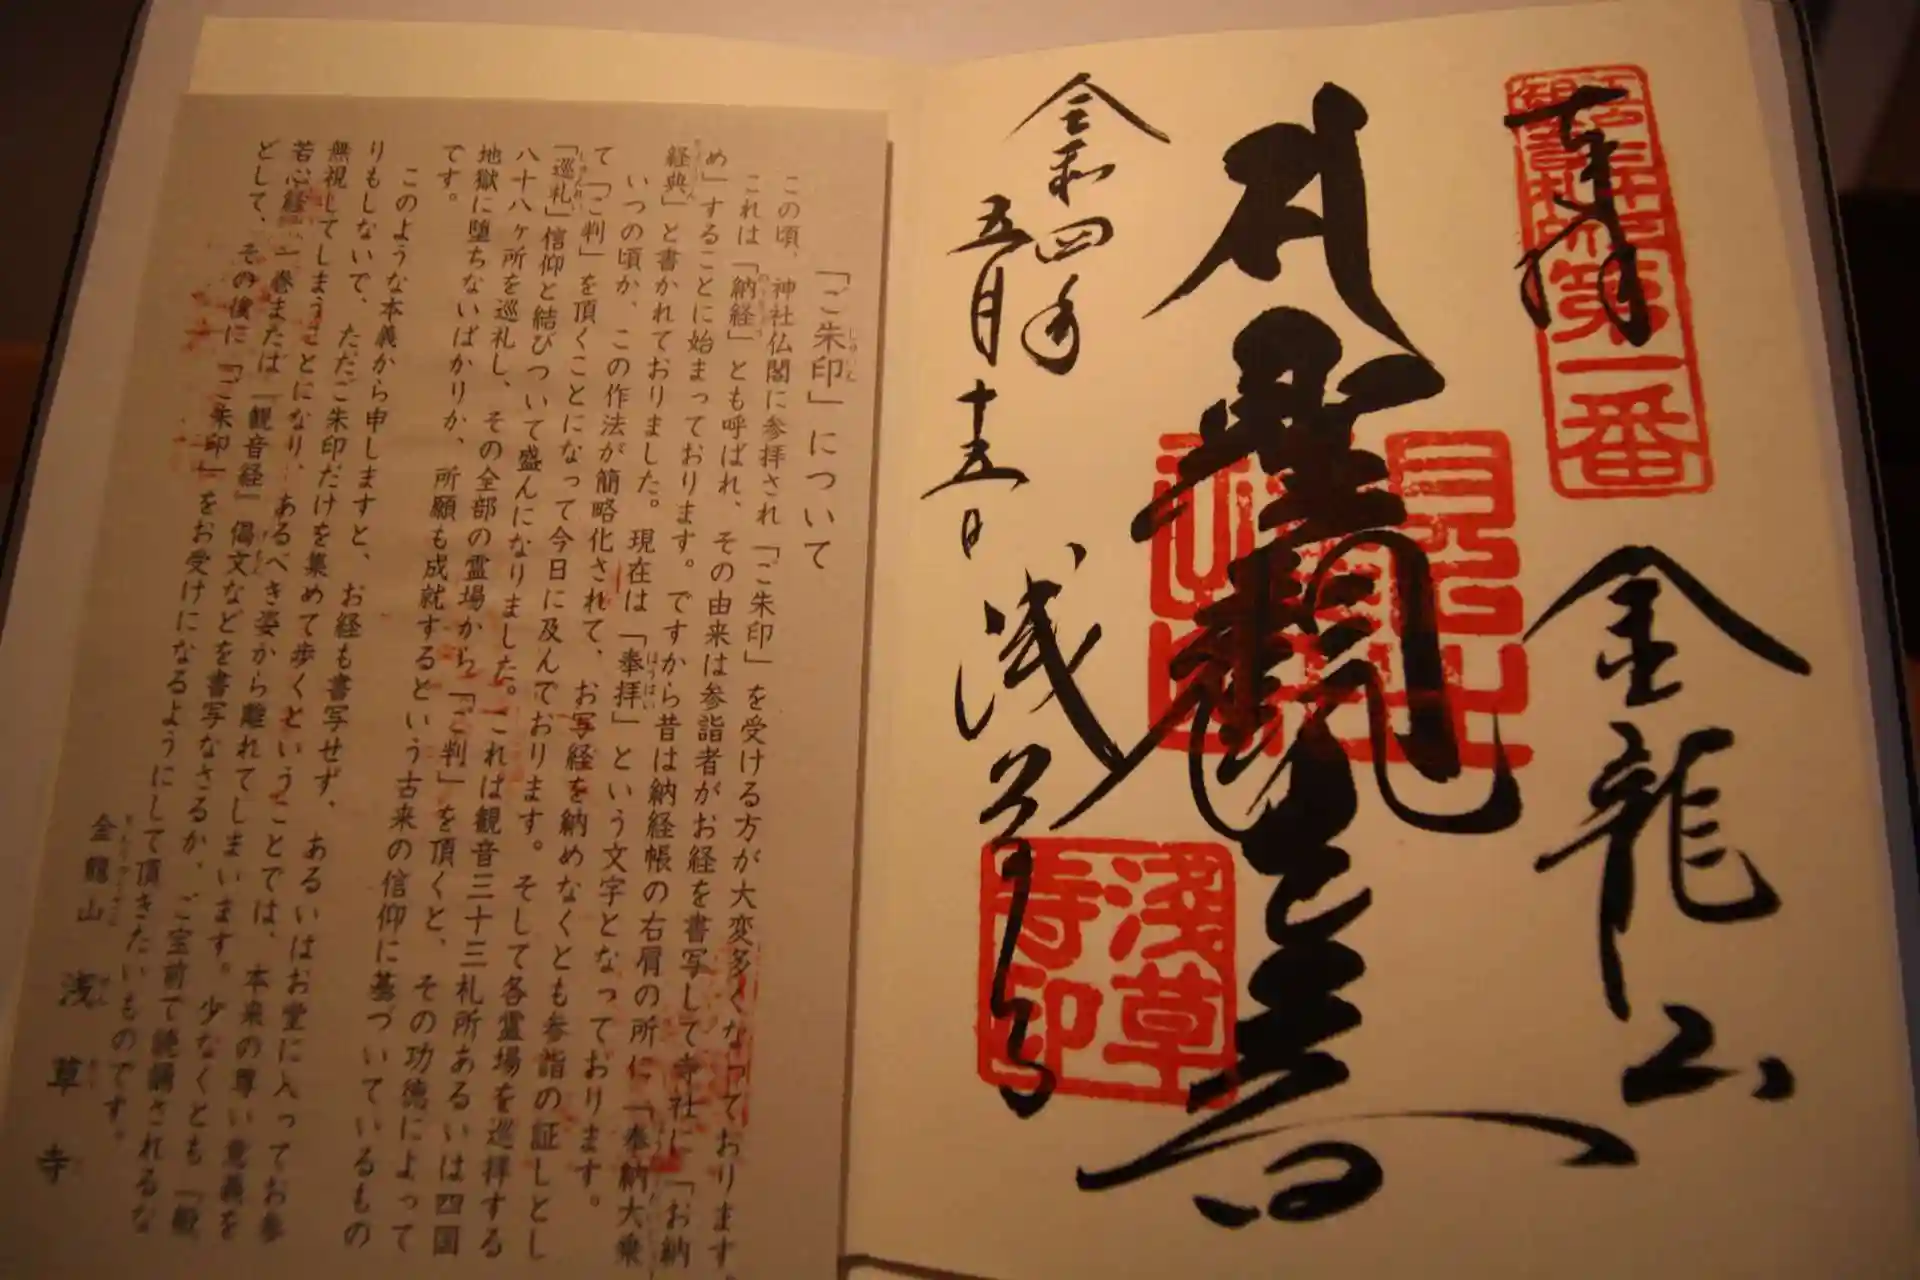 奉拝
金龍山
聖観世音
令和四年
五月十五日
浅草寺
第一番
浅草
寺印
「ご朱印」について
この頃、神社仏閣に参拝され「ご朱印」を受ける方が大変多くなっております。
これは「納経」とも呼ばれ、その由来は参詣者がお経を書写して寺社に「お納
め」することに始まっております。ですから昔は納経帳の右肩の所に「奉納大乗
経典」と書かれておりました。現在は「奉拝」という文字となっております。
いつの頃か、この作法が簡略化されて、お写経を納めなくとも参詣の証しとし
て「ご判」を頂くことになって今日に及んでおります。そして各霊場を巡拝する
「巡礼」信仰と結びついて盛んになりました。これは観音三十三札所あるいは四国
八十八ヶ所を巡礼し、その全部の霊場から「ご判」を頂くと、その功徳によって
地獄に堕ちないばかりか、所願も成就するという古来の信仰に基づいているもの
です。
このような本義から申しますと、お経も書写せず、あるいはお堂に入ってお参
りもしないで、ただご朱印だけを集めて歩くということでは、本来の尊い意義を
無視してしまうことになり、あるべき姿から離れてしまいます。少なくとも『般
若心経』一巻または『観音経』偈文などを書写なさるか、ご宝前で読誦されるな
どして、その後に「ご朱印」をお受けになるようにして頂きたいものです。
金龍山 浅草寺